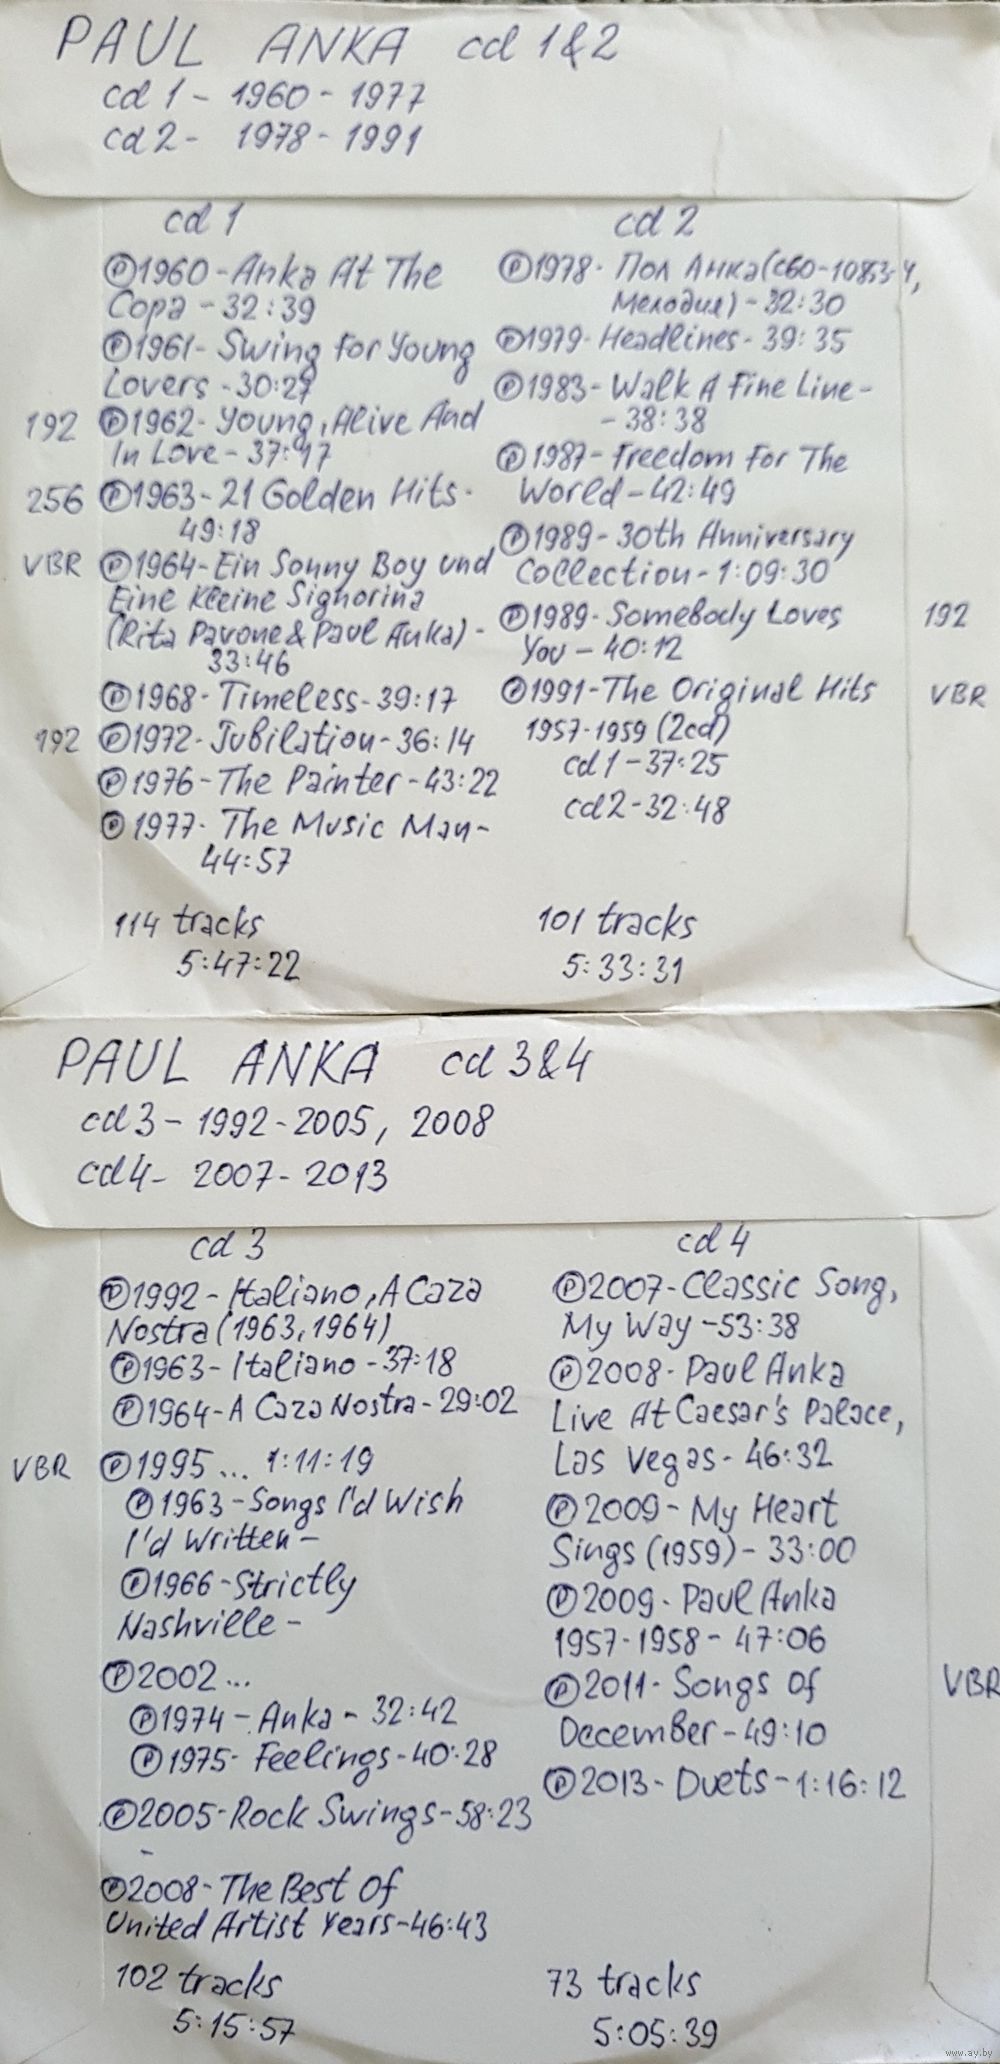 PAUL ANKA cd 1&2
cd 1 - 1960 - 1977
cd 2 - 1978 - 1991
cd 1
Ⓟ1960 - Anka At The
Copa - 32:39
Ⓟ1961 - Swing For Young
Lovers - 30:27
192 Ⓟ1962 - Young, Alive And
In Love - 37:17
256 Ⓟ1963 - 21 Golden Hits -
49:18
VBR Ⓟ1964 - Ein Sonny Boy und
Eine Kleine Signorina
(Rita Pavone & Paul Anka) -
33:46
Ⓟ1968 - Timeless - 39:17
192 Ⓟ1972 - Jubilation - 36:14
Ⓟ1976 - The Painter - 43:22
Ⓟ1977 - The Music Man -
44:57
114 tracks
5:47:22
cd 2
Ⓟ1978 - Пол Анка (с60-10853-4,
Мелодия) - 32:30
Ⓟ1979 - Headlines - 39:35
Ⓟ1983 - Walk A Fine Line -
- 38:38
Ⓟ1987 - Freedom For The
World - 42:49
Ⓟ1989 - 30th Anniversary
Collection - 1:09:30
Ⓟ1989 - Somebody Loves 192
You - 40:12
Ⓟ1991 - The Original Hits VBR
1957-1959 (2cd)
cd 1 - 37:25
cd 2 - 32:48
101 tracks
5:33:31
PAUL ANKA cd 3&4
cd 3 - 1992 - 2005, 2008
cd 4 - 2007 - 2013
cd 3
Ⓟ1992 - Italiano, A Caza
Nostra (1963, 1964)
Ⓟ1963 - Italiano - 37:18
Ⓟ1964 - A Caza Nostra - 29:02
VBR Ⓟ1995 ... 1:11:19
Ⓟ1963 - Songs I'd Wish
I'd Written -
Ⓟ1966 - Strictly
Nashville -
Ⓟ2002 ...
Ⓟ1974 - Anka - 32:42
Ⓟ1975 - Feelings - 40:28
Ⓟ2005 - Rock Swings - 58:23
-
Ⓟ2008 - The Best Of
United Artist Years - 46:43
102 tracks
5:15:57
cd 4
Ⓟ2007 - Classic Song,
My Way - 53:38
Ⓟ2008 - Paul Anka
Live At Caesar's Palace,
Las Vegas - 46:32
Ⓟ2009 - My Heart
Sings (1959) - 33:00
Ⓟ2009 - Paul Anka
1957-1958 - 47:06
Ⓟ2011 - Songs Of VBR
December - 49:10
Ⓟ2013 - Duets - 1:16:12
73 tracks
5:05:39
www.ay.by